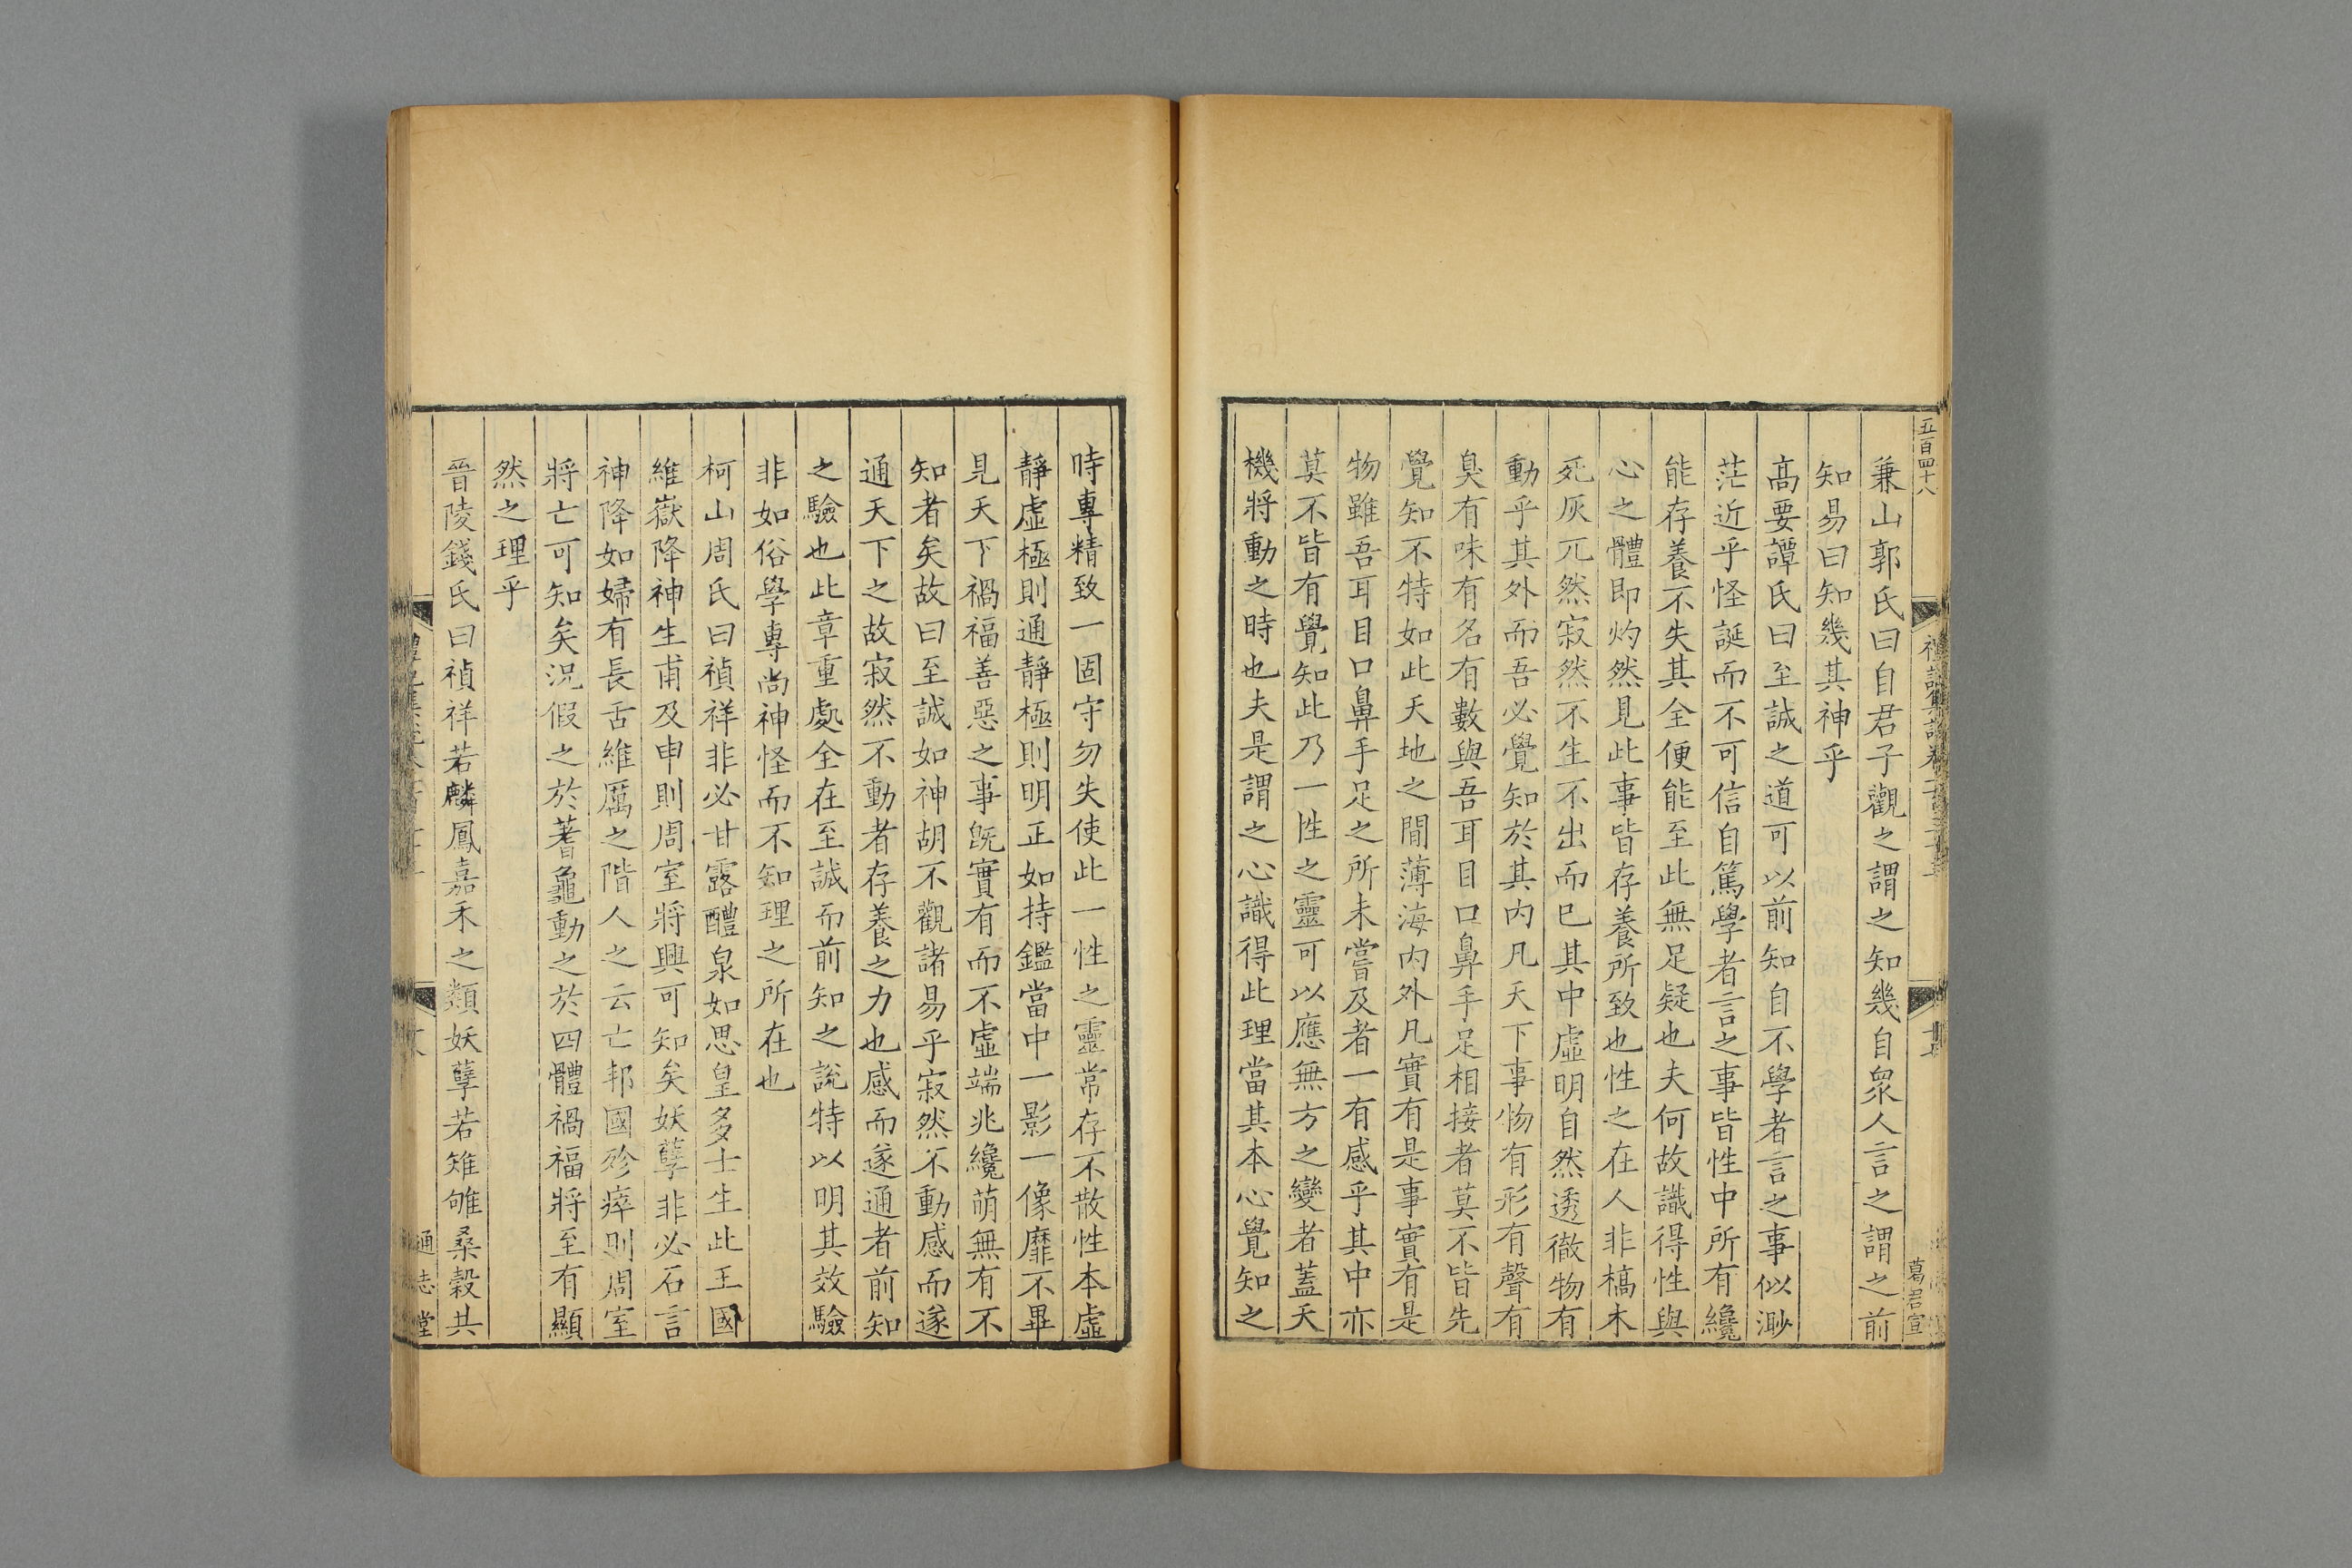 五百四十八
葛君宣
兼山郭氏曰自君子觀之謂之知幾自衆人言之謂之前
知易曰知幾其神乎
高要譚氏曰至誠之道可以前知自不學者言之事似渺
茫近乎怪誕而不可信自篤學者言之事皆性中所有纔
能存養不失其全便能至此無足疑也夫何故識得性與
心之體即灼然見此事皆存養所致也性之在人非槁木
死灰兀然寂然不生不出而已其中虛明自然透徹物有
動乎其外而吾必覺知於其内凡天下事物有形有聲有
臭有味有名有數與吾耳目口鼻手足相接者莫不皆先
覺知不特如此天地之間薄海内外凡實有是事實有是
物雖吾耳目口鼻手足之所未嘗及者一有感乎其中亦
莫不皆有覺知此乃一性之靈可以應無方之變者蓋天
機將動之時也夫是謂之心識得此理當其本心覺知之
時專精致一固守勿失使此一性之靈常存不散性本虛
靜虛極則通靜極則明正如持鑑當中一影一像靡不畢
見天下禍福善惡之事旣實有而不虛端兆纔萌無有不
知者矣故曰至誠如神胡不觀諸易乎寂然不動感而遂
通天下之故寂然不動者存養之力也感而遂通者前知
之驗也此章重處全在至誠而前知之說特以明其效驗
非如俗學專尚神怪而不知理之所在也
柯山周氏曰禎祥非必甘露醴泉如思皇多士生此王國
維嶽降神生甫及申則周室將興可知矣妖孽非必石言
神降如婦有長舌維厲之階人之云亡邦國殄瘁則周室
將亡可知矣況假之於蓍龜動之於四體禍福將至有顯
然之理乎
晉陵錢氏曰禎祥若麟鳳嘉禾之類妖孽若雉雊桑穀共
通志堂